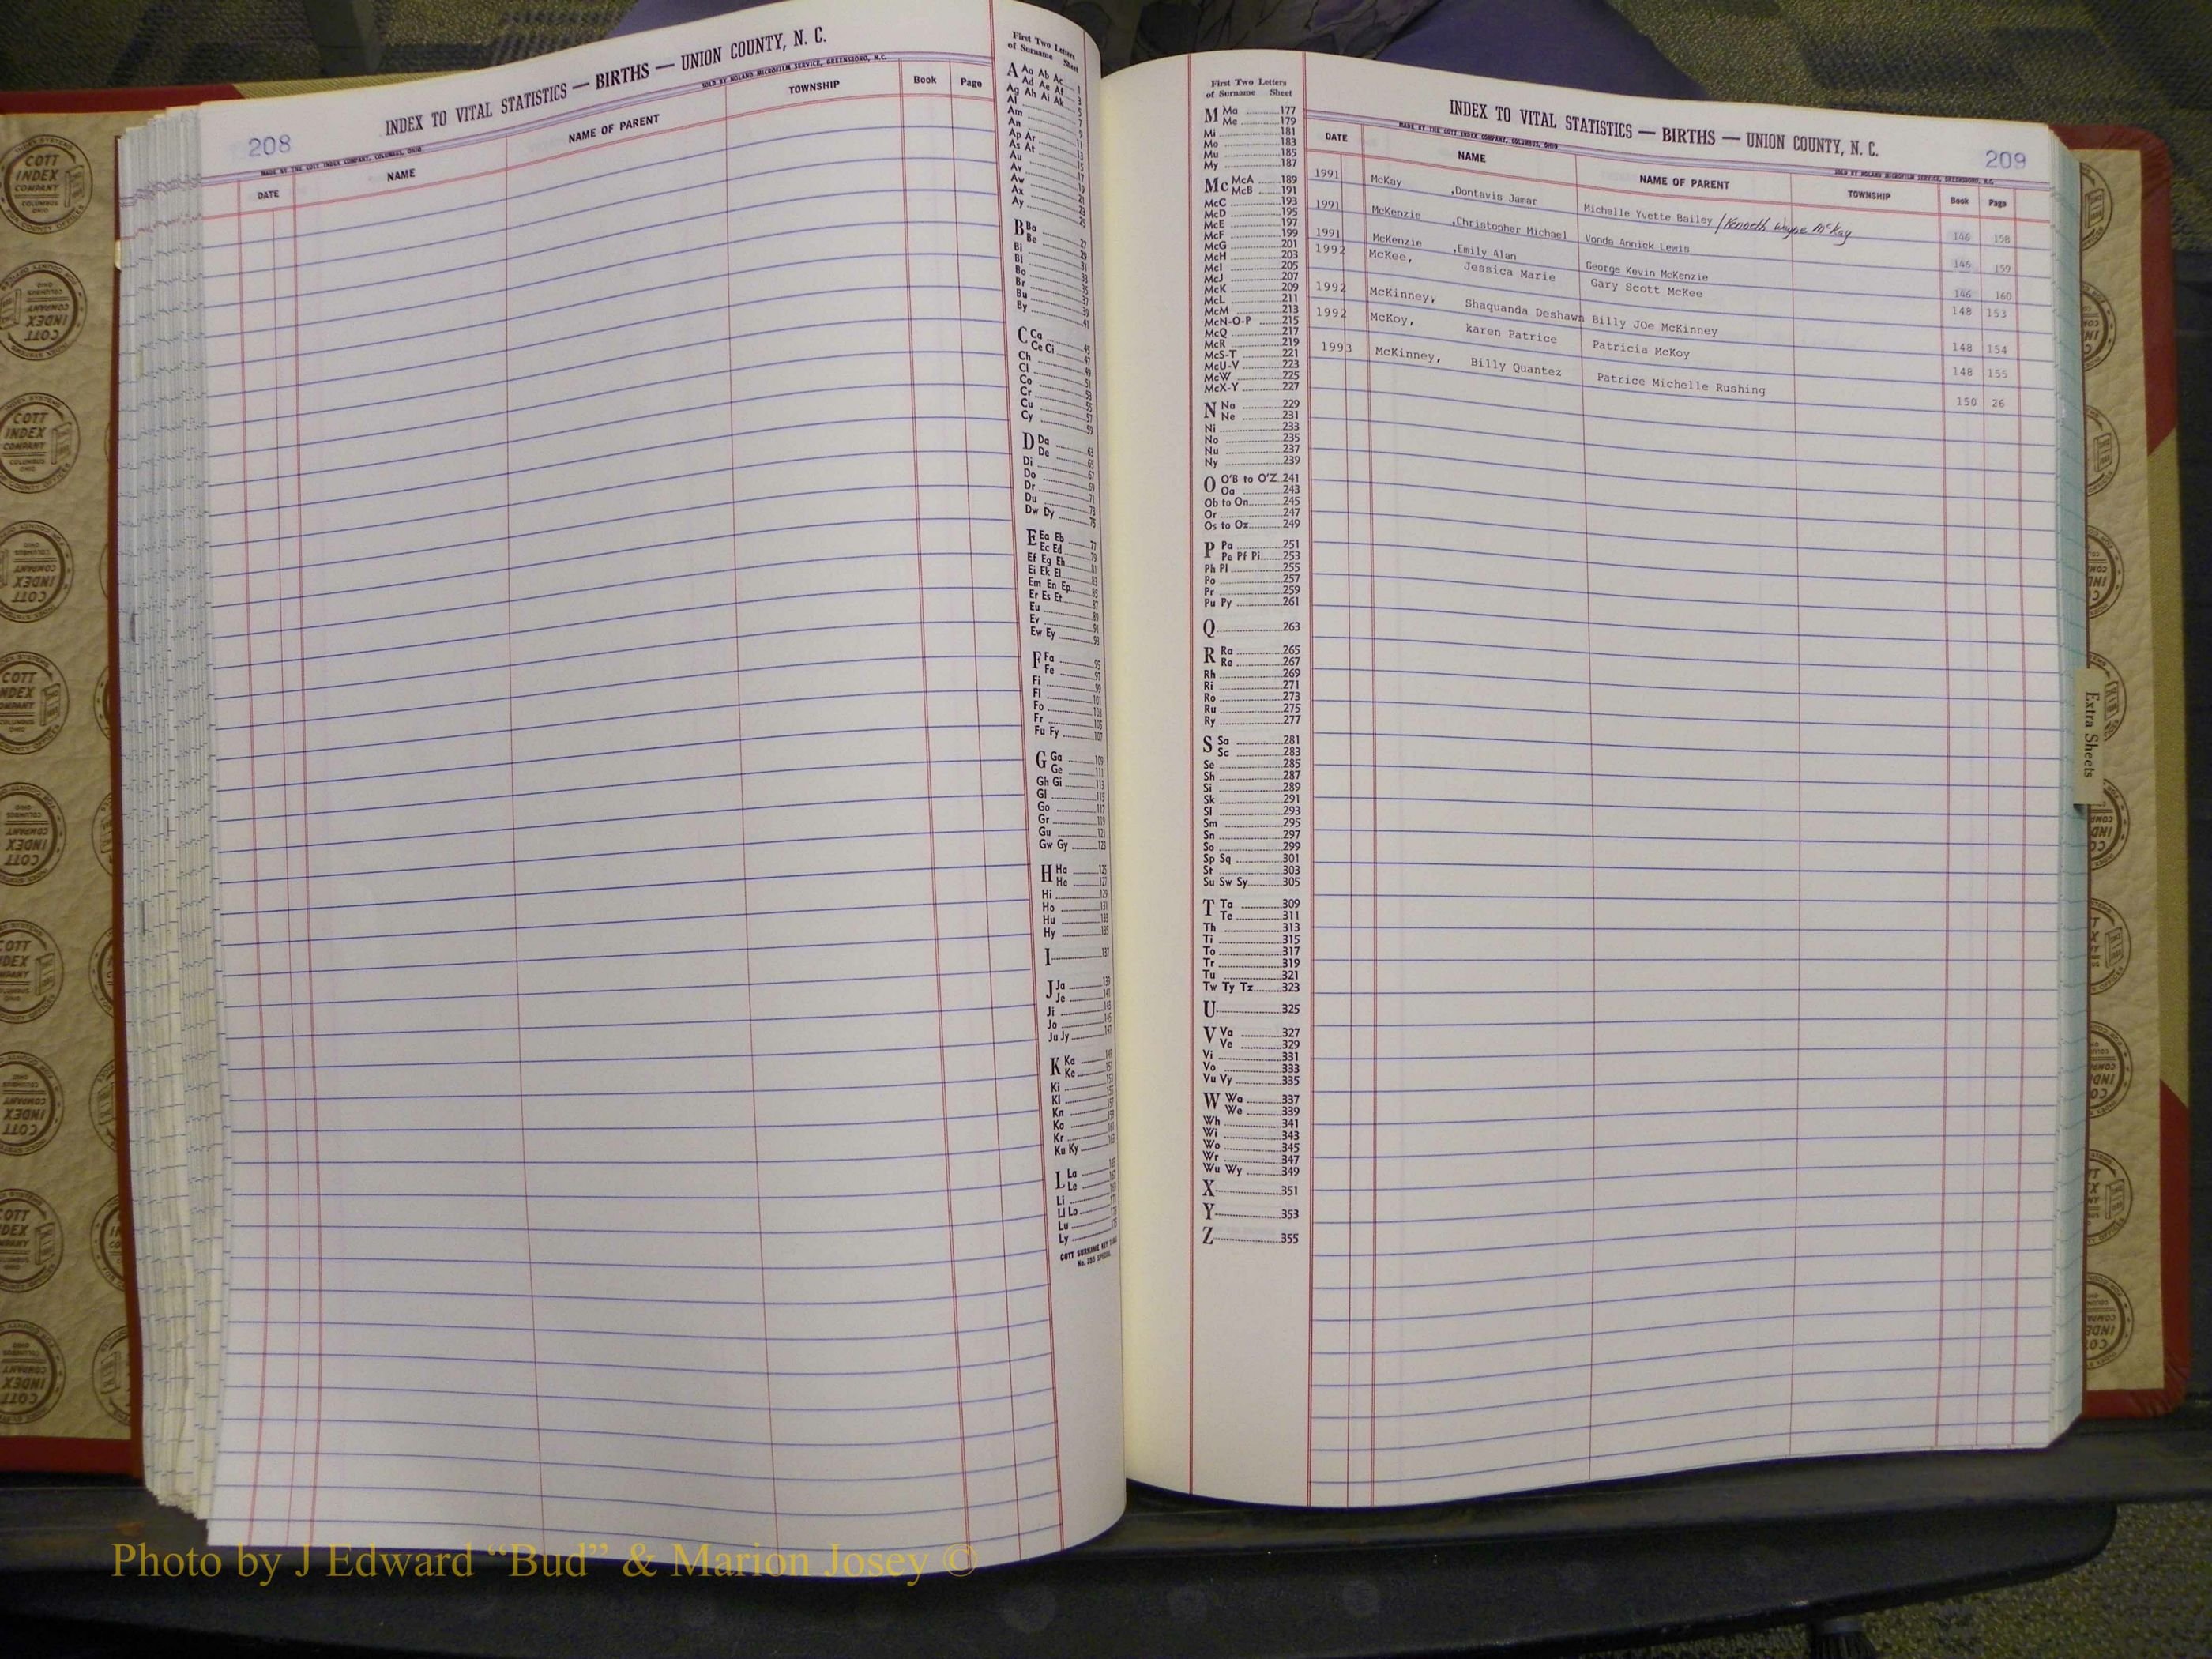 INDEX TO VITAL STATISTICS — BIRTHS — UNION COUNTY, N. C.
208
MADE BY THE COTT INDEX COMPANY, COLUMBUS, OHIO
SOLD BY NOLAND MICROFILM SERVICE, GREENSBORO, N.C.
DATE NAME NAME OF PARENT TOWNSHIP Book Page
First Two Letters
of Surname Sheet
A Aa Ab Ac 1
Ad Ae Af 3
Ag Ah Ai Ak 5
Al 7
Am 9
An 11
Ap Ar 13
As At 15
Au 17
Av 19
Aw 21
Ax 23
Ay 25
B Ba 27
Be 29
Bi 31
Bl 33
Bo 35
Br 37
Bu 39
By 41
C Ca 45
Ce Ci 47
Ch 49
Cl 51
Co 53
Cr 55
Cu 57
Cy 59
D Da 63
De 65
Di 67
Do 69
Dr 71
Du 73
Dw Dy 75
E Ea Eb 77
Ec Ed 79
Ef Eg Eh 81
Ei Ek El 83
Em En Ep 85
Er Es Et 87
Eu 89
Ev 91
Ew Ey 93
F Fa 95
Fe 97
Fi 99
Fl 101
Fo 103
Fr 105
Fu Fy 107
G Ga 109
Ge 111
Gh Gi 113
Gl 115
Go 117
Gr 119
Gu 121
Gw Gy 123
H Ha 125
He 127
Hi 129
Ho 131
Hu 133
Hy 135
I 137
J Ja 139
Je 141
Ji 143
Jo 145
Ju Jy 147
K Ka 149
Ke 151
Ki
Kl
Kn
Ko
Kr
Ku Ky
L La
Le
Li
Ll Lo
Lu
Ly
COTT SURNAME KEY TABLE
First Two Letters
of Surname Sheet
M Ma 177
Me 179
Mi 181
Mo 183
Mu 185
My 187
Mc McA 189
McB 191
McC 193
McD 195
McE 197
McF 199
McG 201
McH 203
McI 205
McJ 207
McK 209
McL 211
McM 213
McN-O-P 215
McQ 217
McR 219
McS-T 221
McU-V 223
McW 225
McX-Y 227
N Na 229
Ne 231
Ni 233
No 235
Nu 237
Ny 239
O O'B to O'Z 241
Oa 243
Ob to On 245
Or 247
Os to Oz 249
P Pa 251
Pe Pf Pi 253
Ph Pl 255
Po 257
Pr 259
Pu Py 261
Q 263
R Ra 265
Re 267
Rh 269
Ri 271
Ro 273
Ru 275
Ry 277
S Sa 281
Sc 283
Se 285
Sh 287
Si 289
Sk 291
Sl 293
Sm 295
Sn 297
So 299
Sp Sq 301
St 303
Su Sw Sy 305
T Ta 309
Te 311
Th 313
Ti 315
To 317
Tr 319
Tu 321
Tw Ty Tz 323
U 325
V Va 327
Ve 329
Vi 331
Vo 333
Vu Vy 335
W Wa 337
We 339
Wh 341
Wi 343
Wo 345
Wr 347
Wu Wy 349
X 351
Y 353
Z 355
INDEX TO VITAL STATISTICS — BIRTHS — UNION COUNTY, N. C.
209
MADE BY THE COTT INDEX COMPANY, COLUMBUS, OHIO
SOLD BY NOLAND MICROFILM SERVICE, GREENSBORO, N.C.
DATE NAME NAME OF PARENT TOWNSHIP Book Page
1991 McKay ,Dontavis Jamar Michelle Yvette Bailey / Kenneth Wayne McKay 146 158
1991 McKenzie ,Christopher Michael Vonda Annick Lewis 146 159
1991 McKenzie ,Emily Alan George Kevin McKenzie 146 160
1992 McKee, Jessica Marie Gary Scott McKee 148 153
1992 McKinney, Shaquanda Deshawn Billy JOe McKinney 148 154
1992 McKoy, karen Patrice Patricia McKoy 148 155
1993 McKinney, Billy Quantez Patrice Michelle Rushing 150 26
Extra Sheets
COTT
INDEX
COMPANY
COLUMBUS
OHIO
Photo by J Edward “Bud” & Marion Josey ©